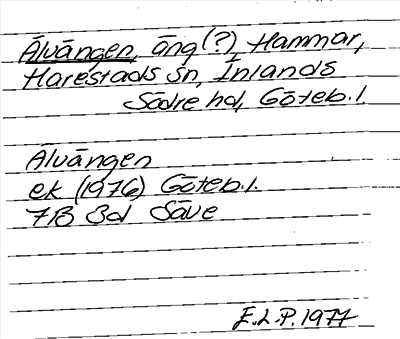 Älvängen, äng (?), Hammar,
Harestads sn, Inlands
Södre hd, Göteb.l.
Älvängen
ek (1976) Göteb.l.
7B 3d Säve
E.L.P. 1977